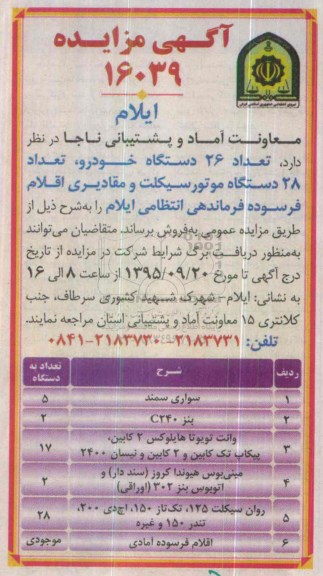 آگهی مزایده
۱۶۰۳۹
ایلام
معاونت آماد و پشتیبانی ناجا در نظر
دارد، تعداد ۲۶ دستگاه خودرو، تعداد
۲۸ دستگاه موتورسیکلت و مقادیری اقلام
فرسوده فرماندهی انتظامی ایلام را به‌شرح ذیل از
طریق مزایده عمومی به‌فروش برساند. متقاضیان می‌توانند
به‌منظور دریافت برگ شرایط شرکت در مزایده از تاریخ
درج آگهی تا مورخ ۱۳۹۵/۰۹/۲۰ از ساعت ۸ الی ۱۶
به نشانی: ایلام - شهرک شهید کشوری سرطاف، جنب
کلانتری ۱۵ معاونت آماد و پشتیبانی استان مراجعه نمایند.
تلفن: ۲۱۸۳۷۳۱-۰۸۴۱-۲۱۸۳۷۳۰
ردیف شرح تعداد به دستگاه
۱ سواری سمند ۵
۲ بنز C۲۴۰ ۲
۳ وانت تویوتا هایلوکس ۲ کابین، ۱۷
پیکاب تک کابین و ۲ کابین و نیسان ۲۴۰۰
۴ مینی‌بوس هیوندا کروز (سند دار) و ۲
اتوبوس بنز ۳۰۲ (اوراقی)
۵ روان سیکلت ۱۲۵، تک‌تاز ۱۵۰، اچ‌دی ۲۰۰، ۲۸
تندر ۱۵۰ و غیره
۶ اقلام فرسوده آمادی موجودی